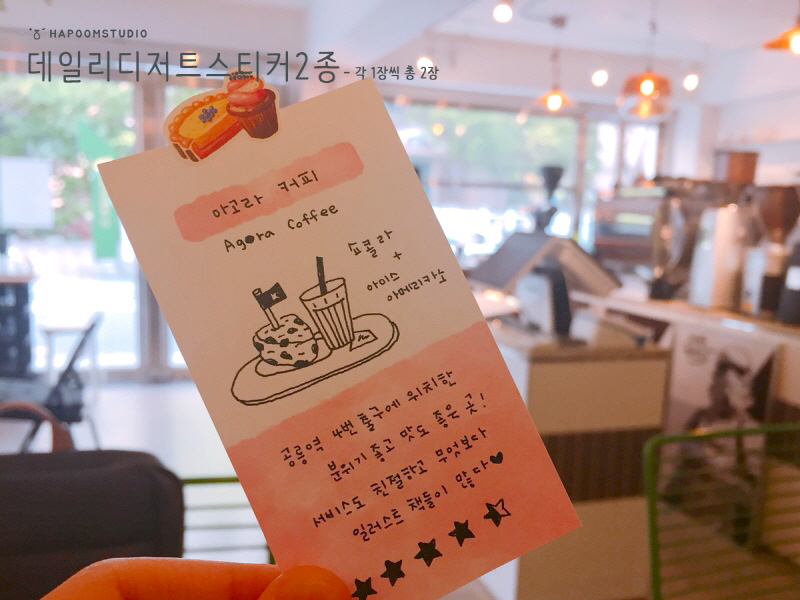 HAPOOMSTUDIO
데일리디저트스티커2종 - 각 1장씩 총 2장
아고라 커피
Agora Coffee
쇼콜라
+
아이스
아메리카노
공릉역 4번 출구에 위치한
분위기 좋고 맛도 좋은 곳!
서비스도 친절하고 무엇보다
일러스트 책들이 많다♥